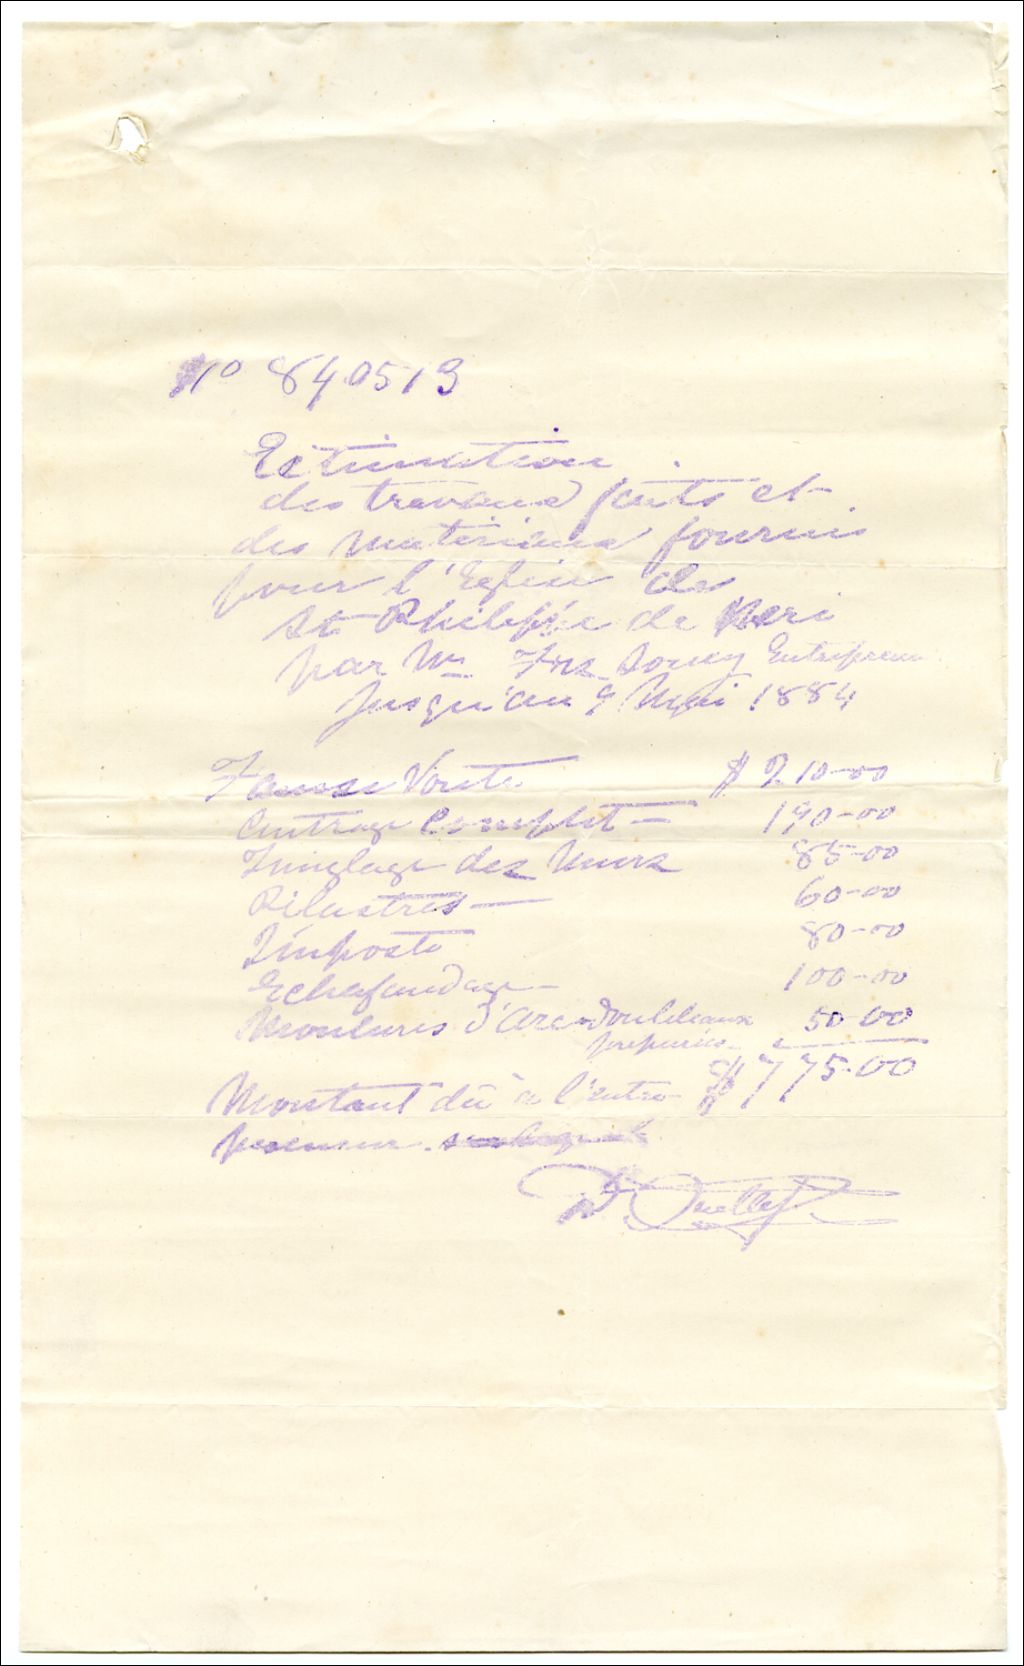 No 840513
Estimation
des travaux faits et
des materiaux fournis
pour l'Eglise de
St Philippe de Neri
par Mr Frs Soucy Entrepreneur
Jusqu'au 9 Mai 1884
Fausse Voute $ 210-00
Cintrage complet — 190-00
des Murs 85-00
Pilastres — 60-00
Imposte 80-00
Echafaudage — 100-00
Moulures d'Arc-doubleaux 50-00
preparées
$ 775.00
Montant dû à l'entre-
preneur.
D. Ouellet